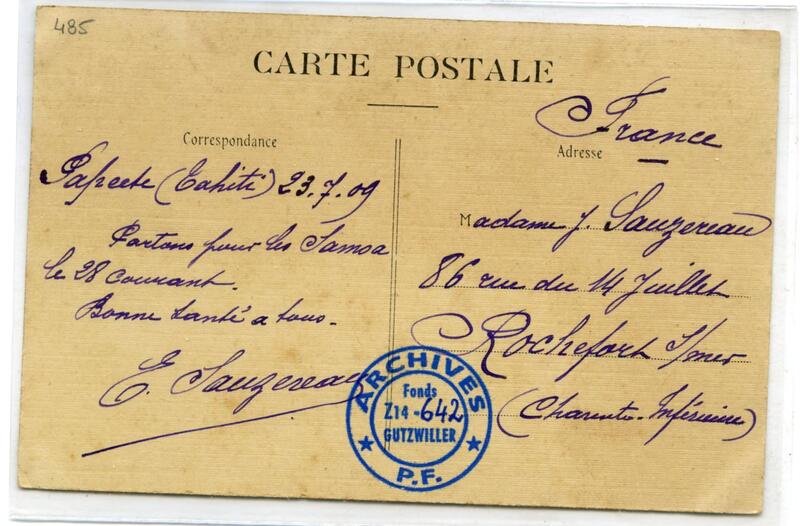 485
CARTE POSTALE
Correspondance
Papeete (Tahiti) 23.7.09
Partons pour les Samoa
le 28 courant.
Bonne santé a tous.
E. Sauzereau
France
Adresse
Madame J. Sauzereau
86 rue du 14 Juillet
Rochefort s/mer
(Charente-Inférieure)
ARCHIVES
Fonds
Z14-642
GUTZWILLER
P.F.